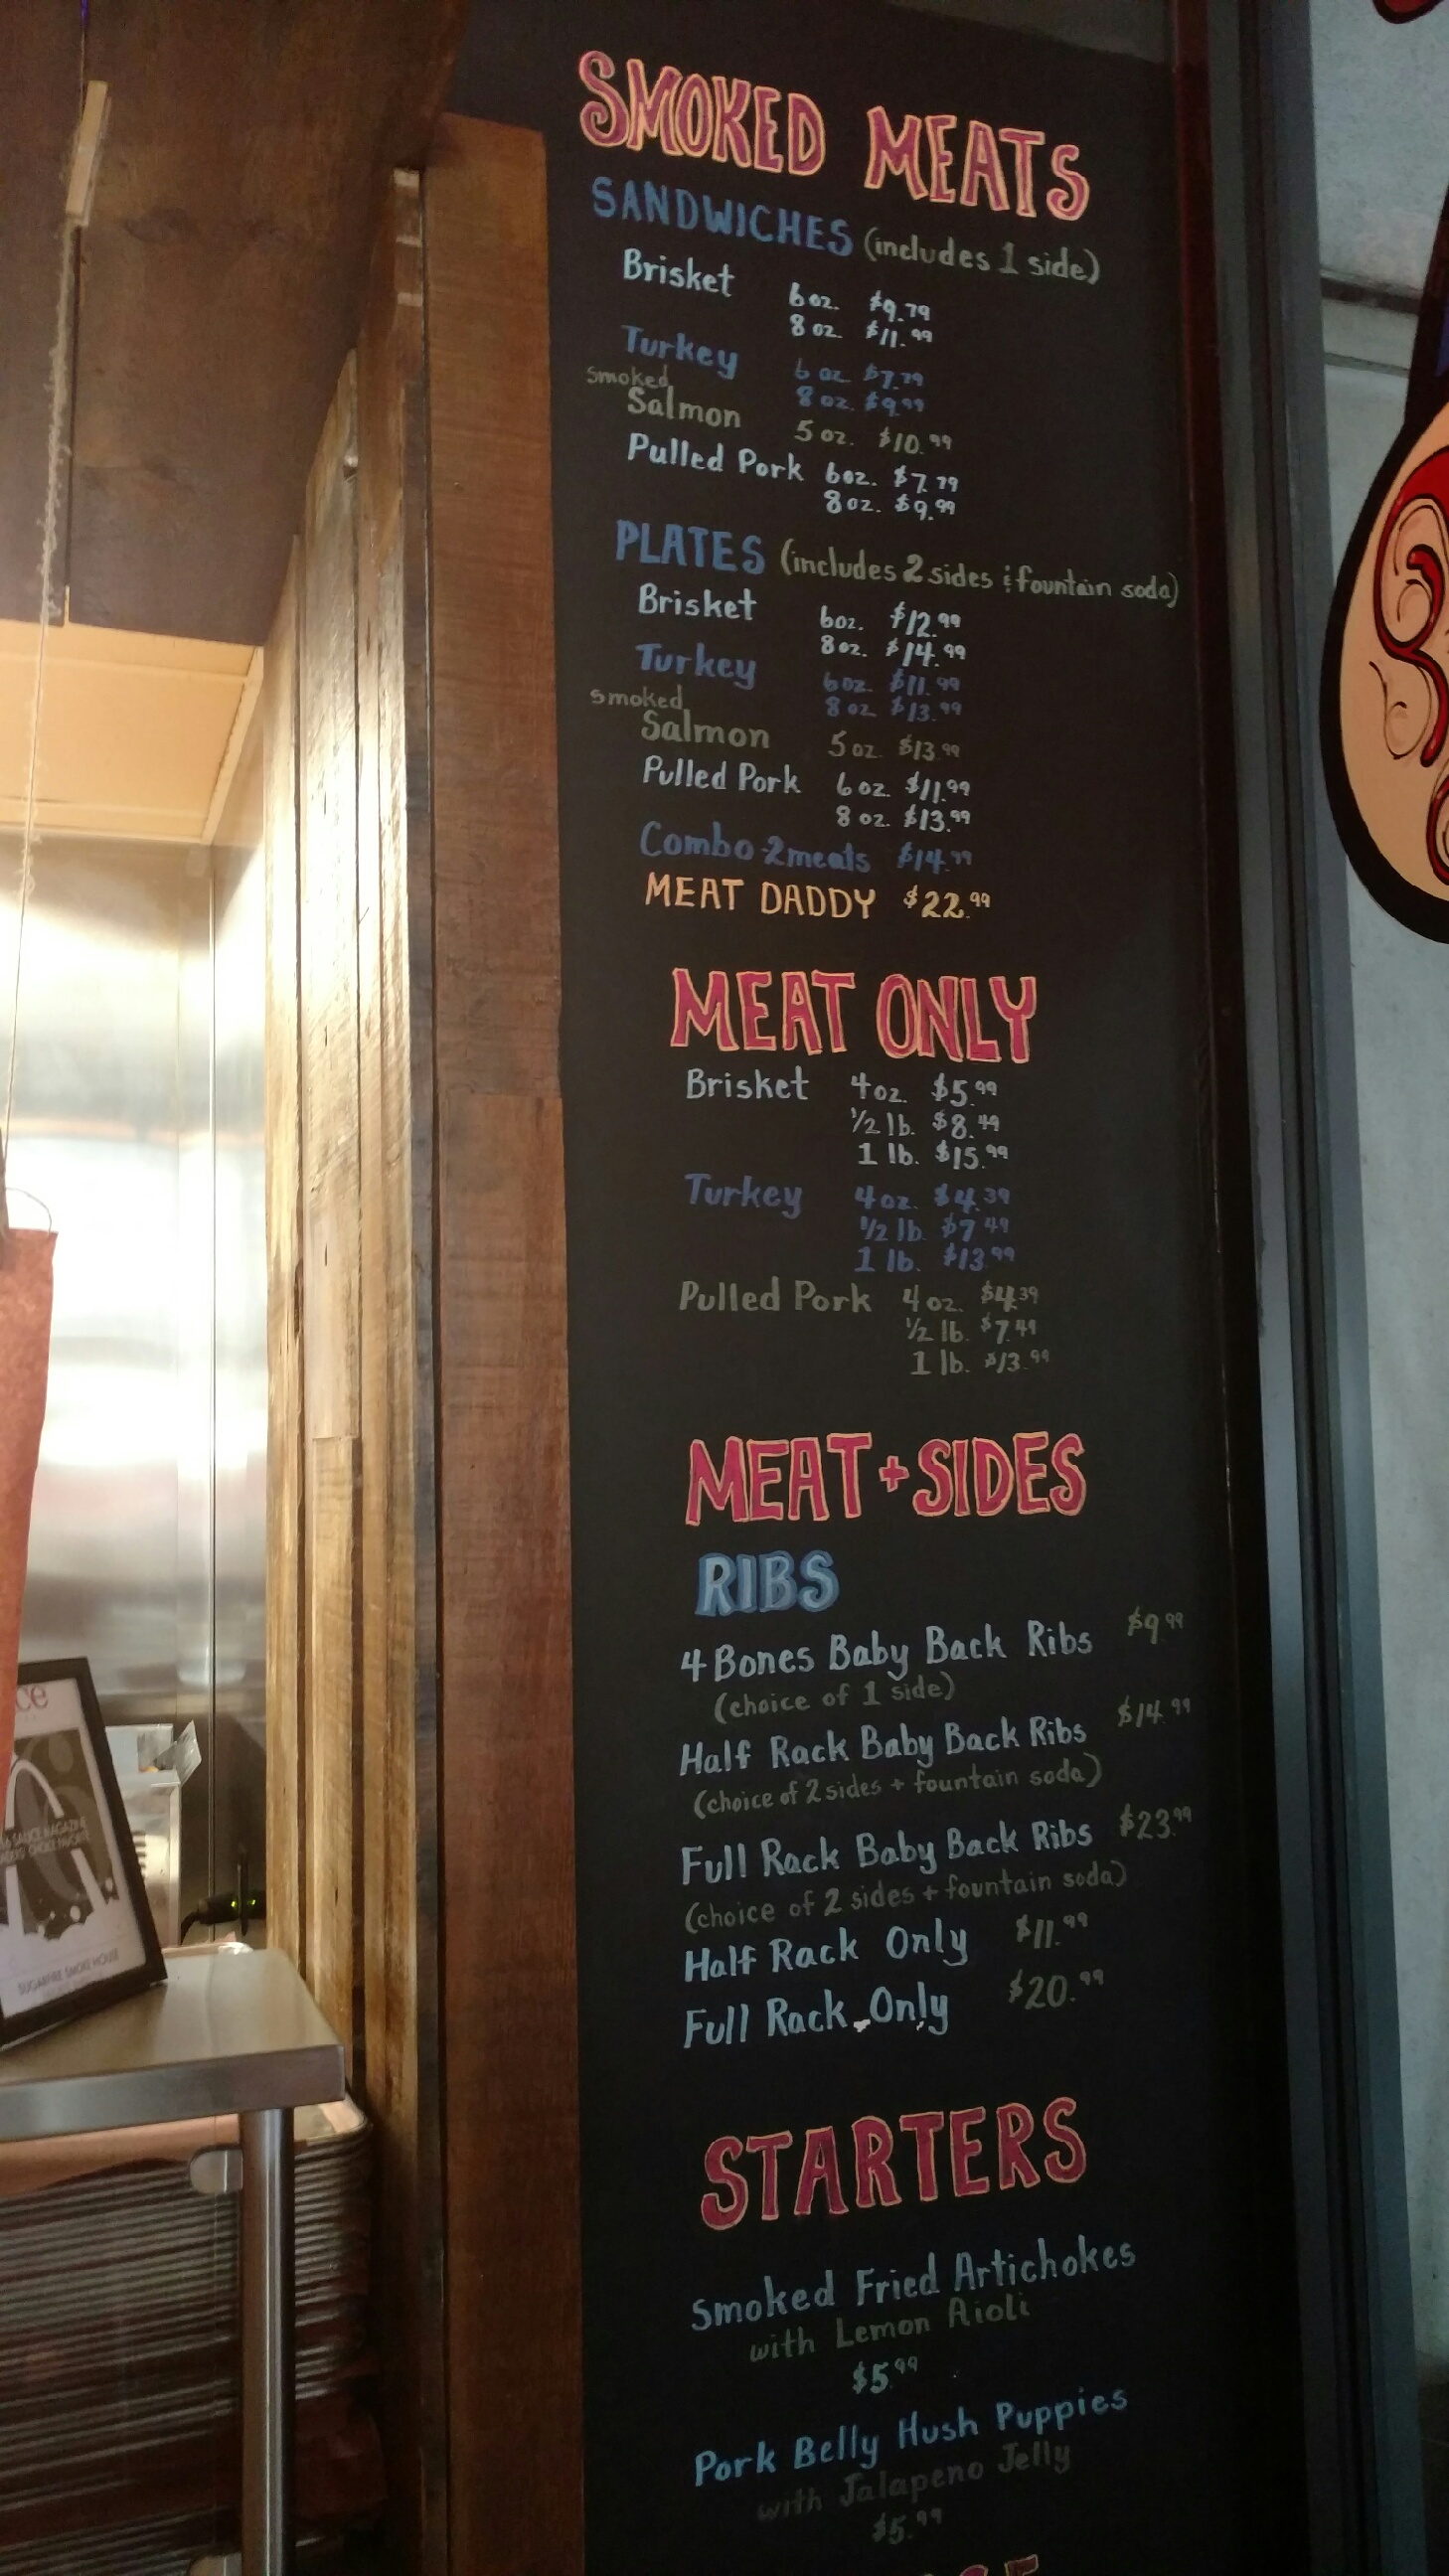 SMOKED MEATS
SANDWICHES (includes 1 side)
Brisket 6 oz. $9.79
8 oz. $11.99
Turkey 6 oz. $7.79
8 oz. $9.99
Smoked
Salmon 5 oz. $10.99
Pulled Pork 6oz. $7.79
8 oz. $9.99
PLATES (includes 2 sides & fountain soda)
Brisket 6oz. $12.99
8oz. $14.99
Turkey 6oz. $11.99
8 oz $13.99
Smoked
Salmon 5 oz $13.99
Pulled Pork 6 oz. $11.99
8 oz. $13.99
Combo-2meats $14.99
MEAT DADDY $22.99
MEAT ONLY
Brisket 4oz. $5.99
1/2 lb. $8.49
1 lb. $15.99
Turkey 4oz. $4.39
1/2 lb. $7.49
1 lb. $13.99
Pulled Pork 4 oz. $4.39
1/2 lb. $7.49
1 lb. $13.99
MEAT + SIDES
RIBS
4 Bones Baby Back Ribs $9.99
(choice of 1 side)
Half Rack Baby Back Ribs $14.99
(choice of 2 sides + fountain soda)
Full Rack Baby Back Ribs $23.99
(choice of 2 sides + fountain soda)
Half Rack Only $11.99
Full Rack Only $20.99
STARTERS
Smoked Fried Artichokes
with Lemon Aioli
$5.99
Pork Belly Hush Puppies
with Jalapeno Jelly
$5.99
SAUCE MAGAZINE
SUGARFIRE SMOKE HOUSE